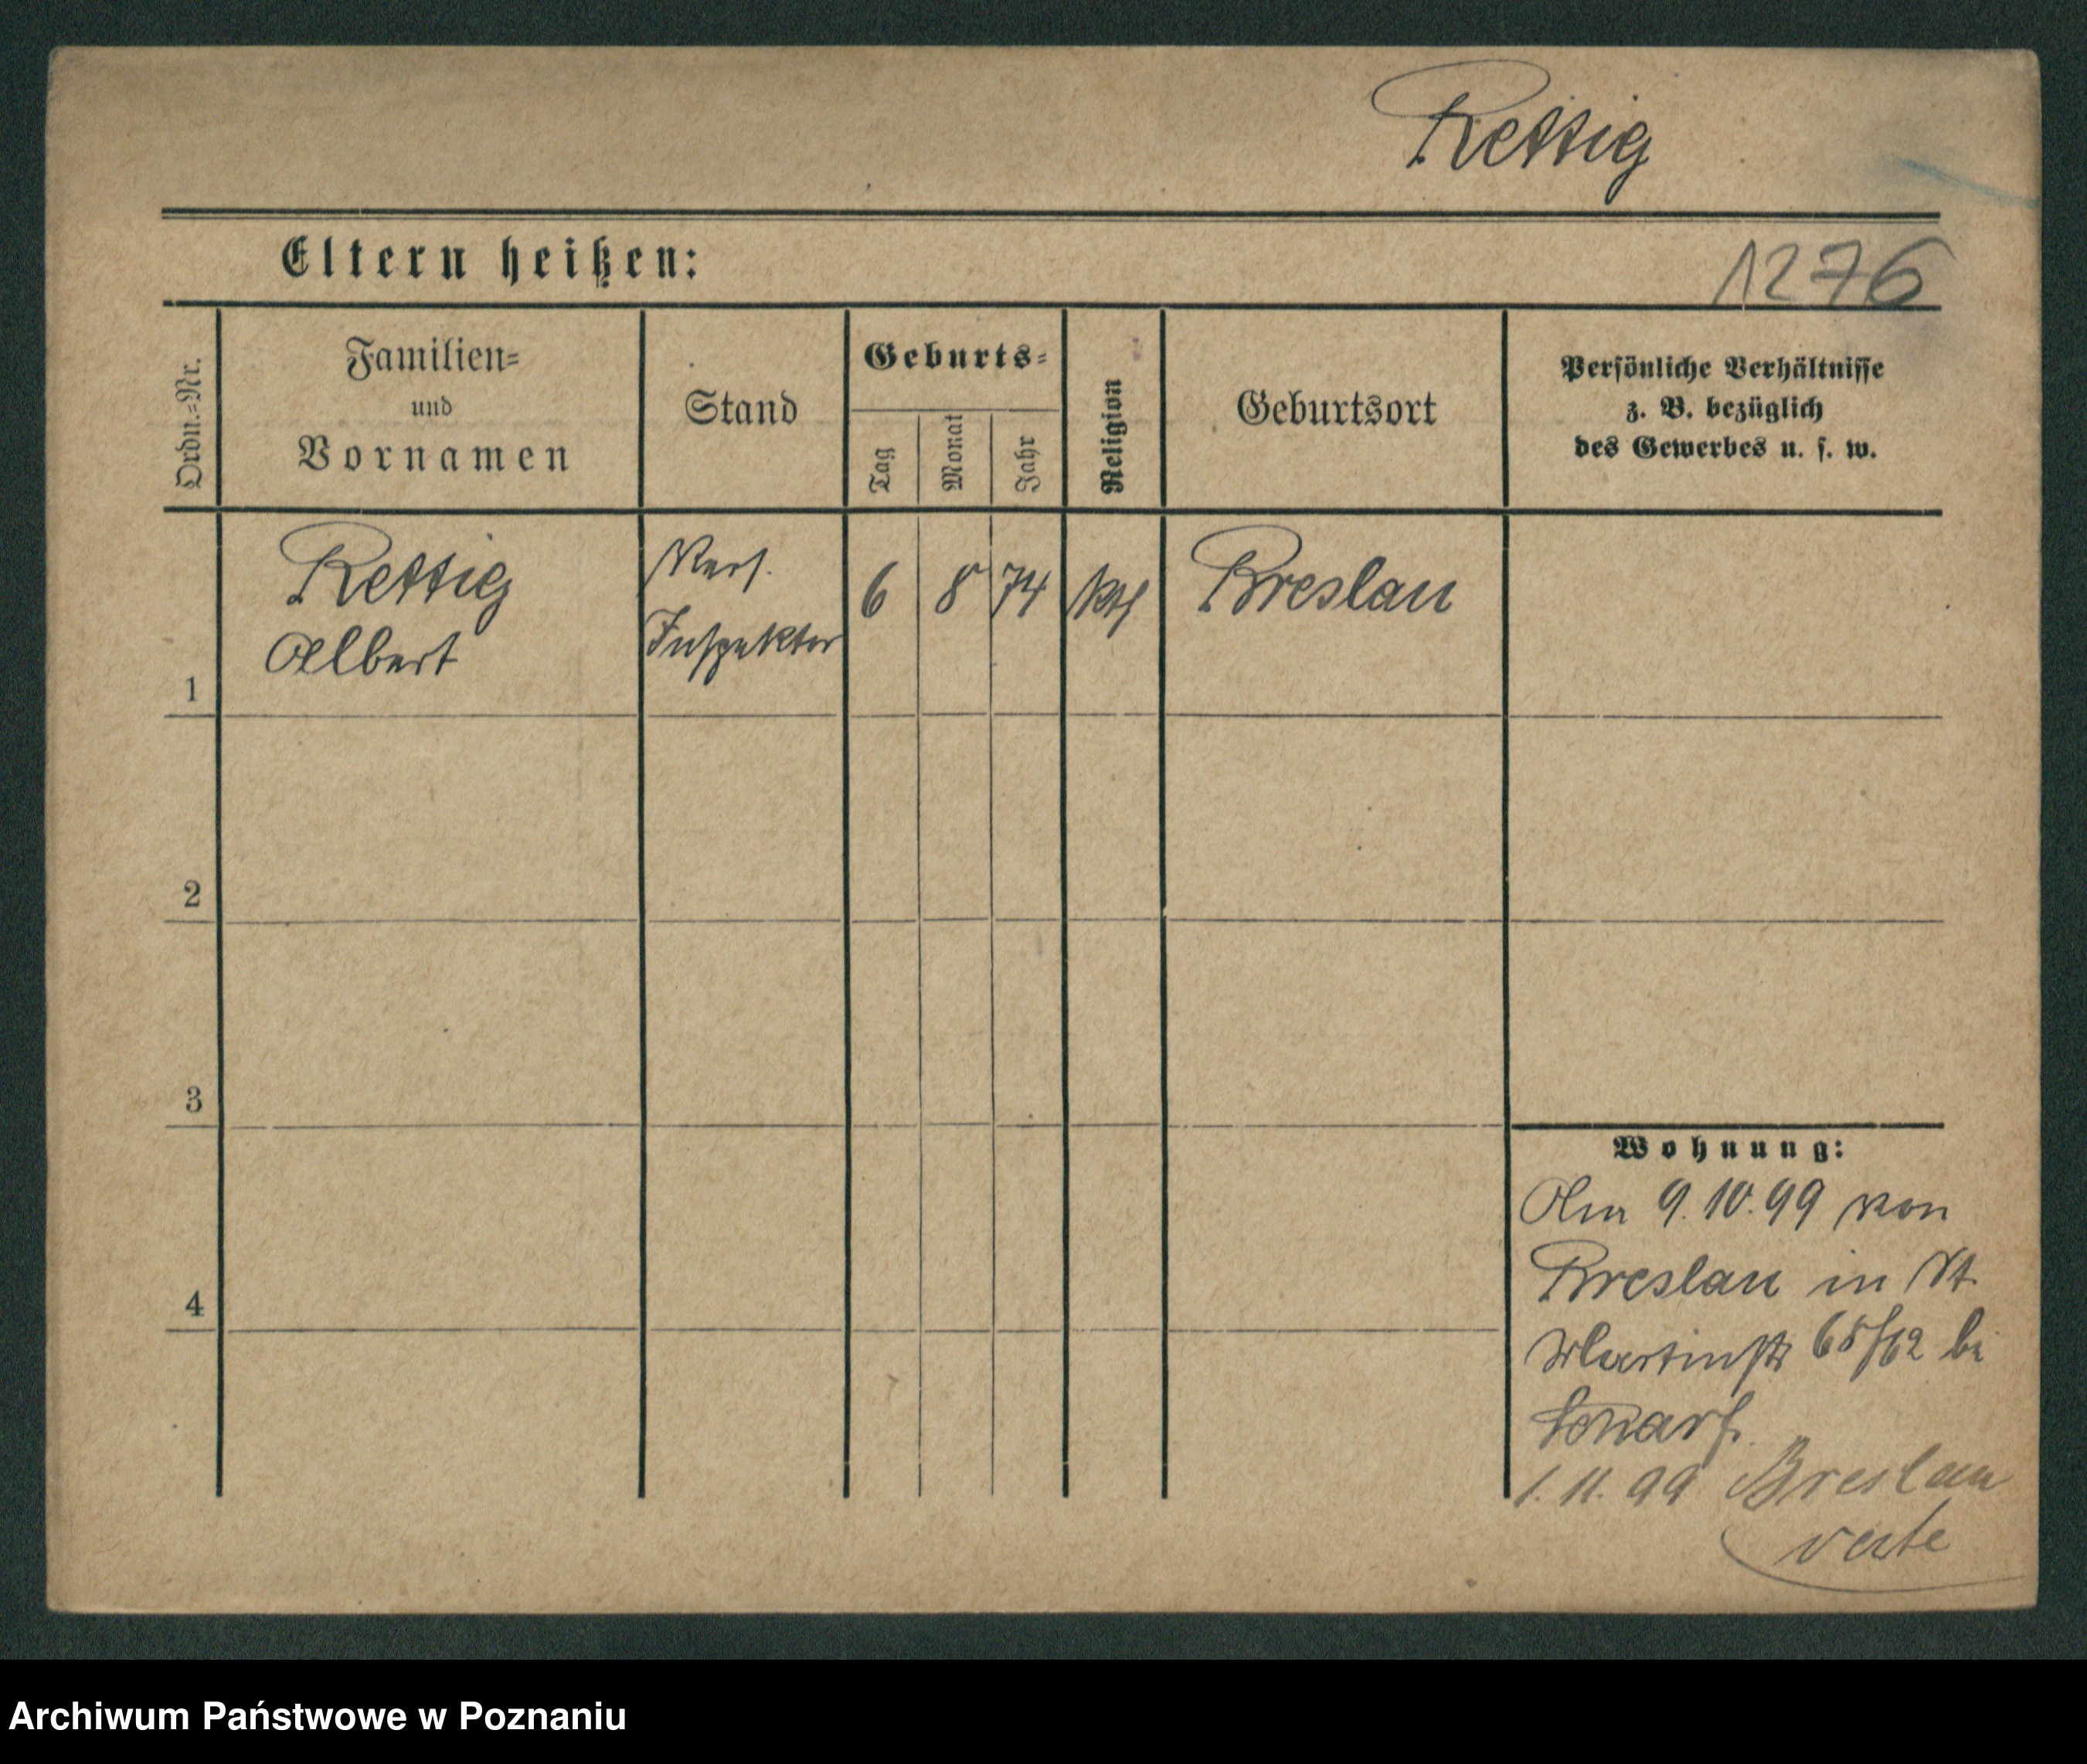 Rettig
Eltern heißen:
1276
Ordn.=Nr.
Familien=
und
Vornamen
Stand
Geburts=
Tag
Monat
Jahr
Religion
Geburtsort
Persönliche Verhältnisse
z. B. bezüglich
des Gewerbes u. s. w.
Rettig
Albert
Vers.
Inspektor
6 8 74 kth
Breslau
1
2
3
4
Wohnung:
Am 9.10.99 von
Breslau in St
Martinstr bei
1.11.99 Breslau
verte
Archiwum Państwowe w Poznaniu